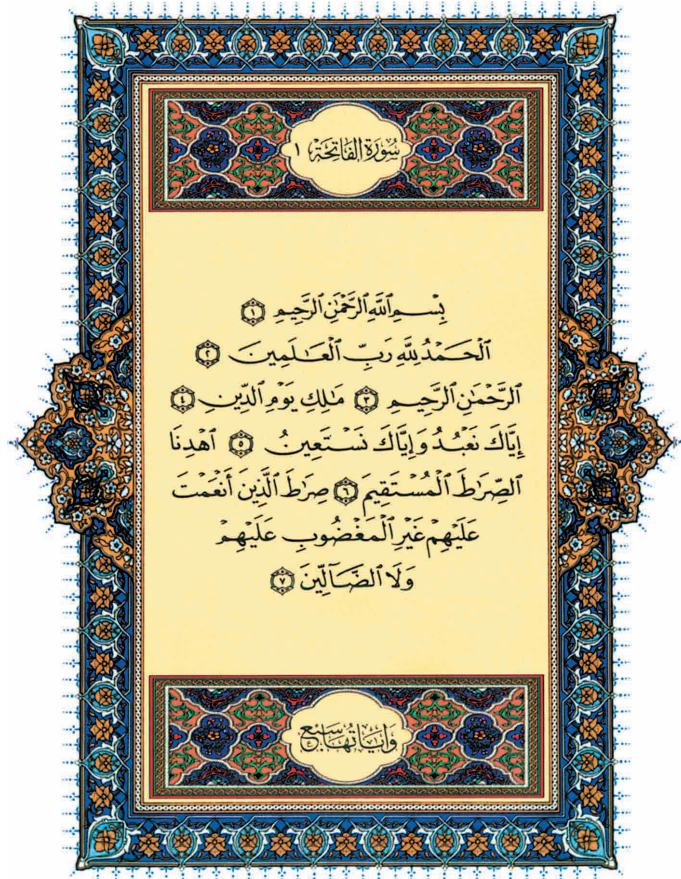 سُورَةُ الفَاتِحَة ١
بِسْمِ ٱللَّهِ ٱلرَّحْمَٰنِ ٱلرَّحِيمِ ١
ٱلْحَمْدُ لِلَّهِ رَبِّ ٱلْعَٰلَمِينَ ٢
ٱلرَّحْمَٰنِ ٱلرَّحِيمِ ٣ مَٰلِكِ يَوْمِ ٱلدِّينِ ٤
إِيَّاكَ نَعْبُدُ وَإِيَّاكَ نَسْتَعِينُ ٥ ٱهْدِنَا
ٱلصِّرَٰطَ ٱلْمُسْتَقِيمَ ٦ صِرَٰطَ ٱلَّذِينَ أَنْعَمْتَ
عَلَيْهِمْ غَيْرِ ٱلْمَغْضُوبِ عَلَيْهِمْ
وَلَا ٱلضَّآلِّينَ ٧
وَايَاتُهَا سَبْع